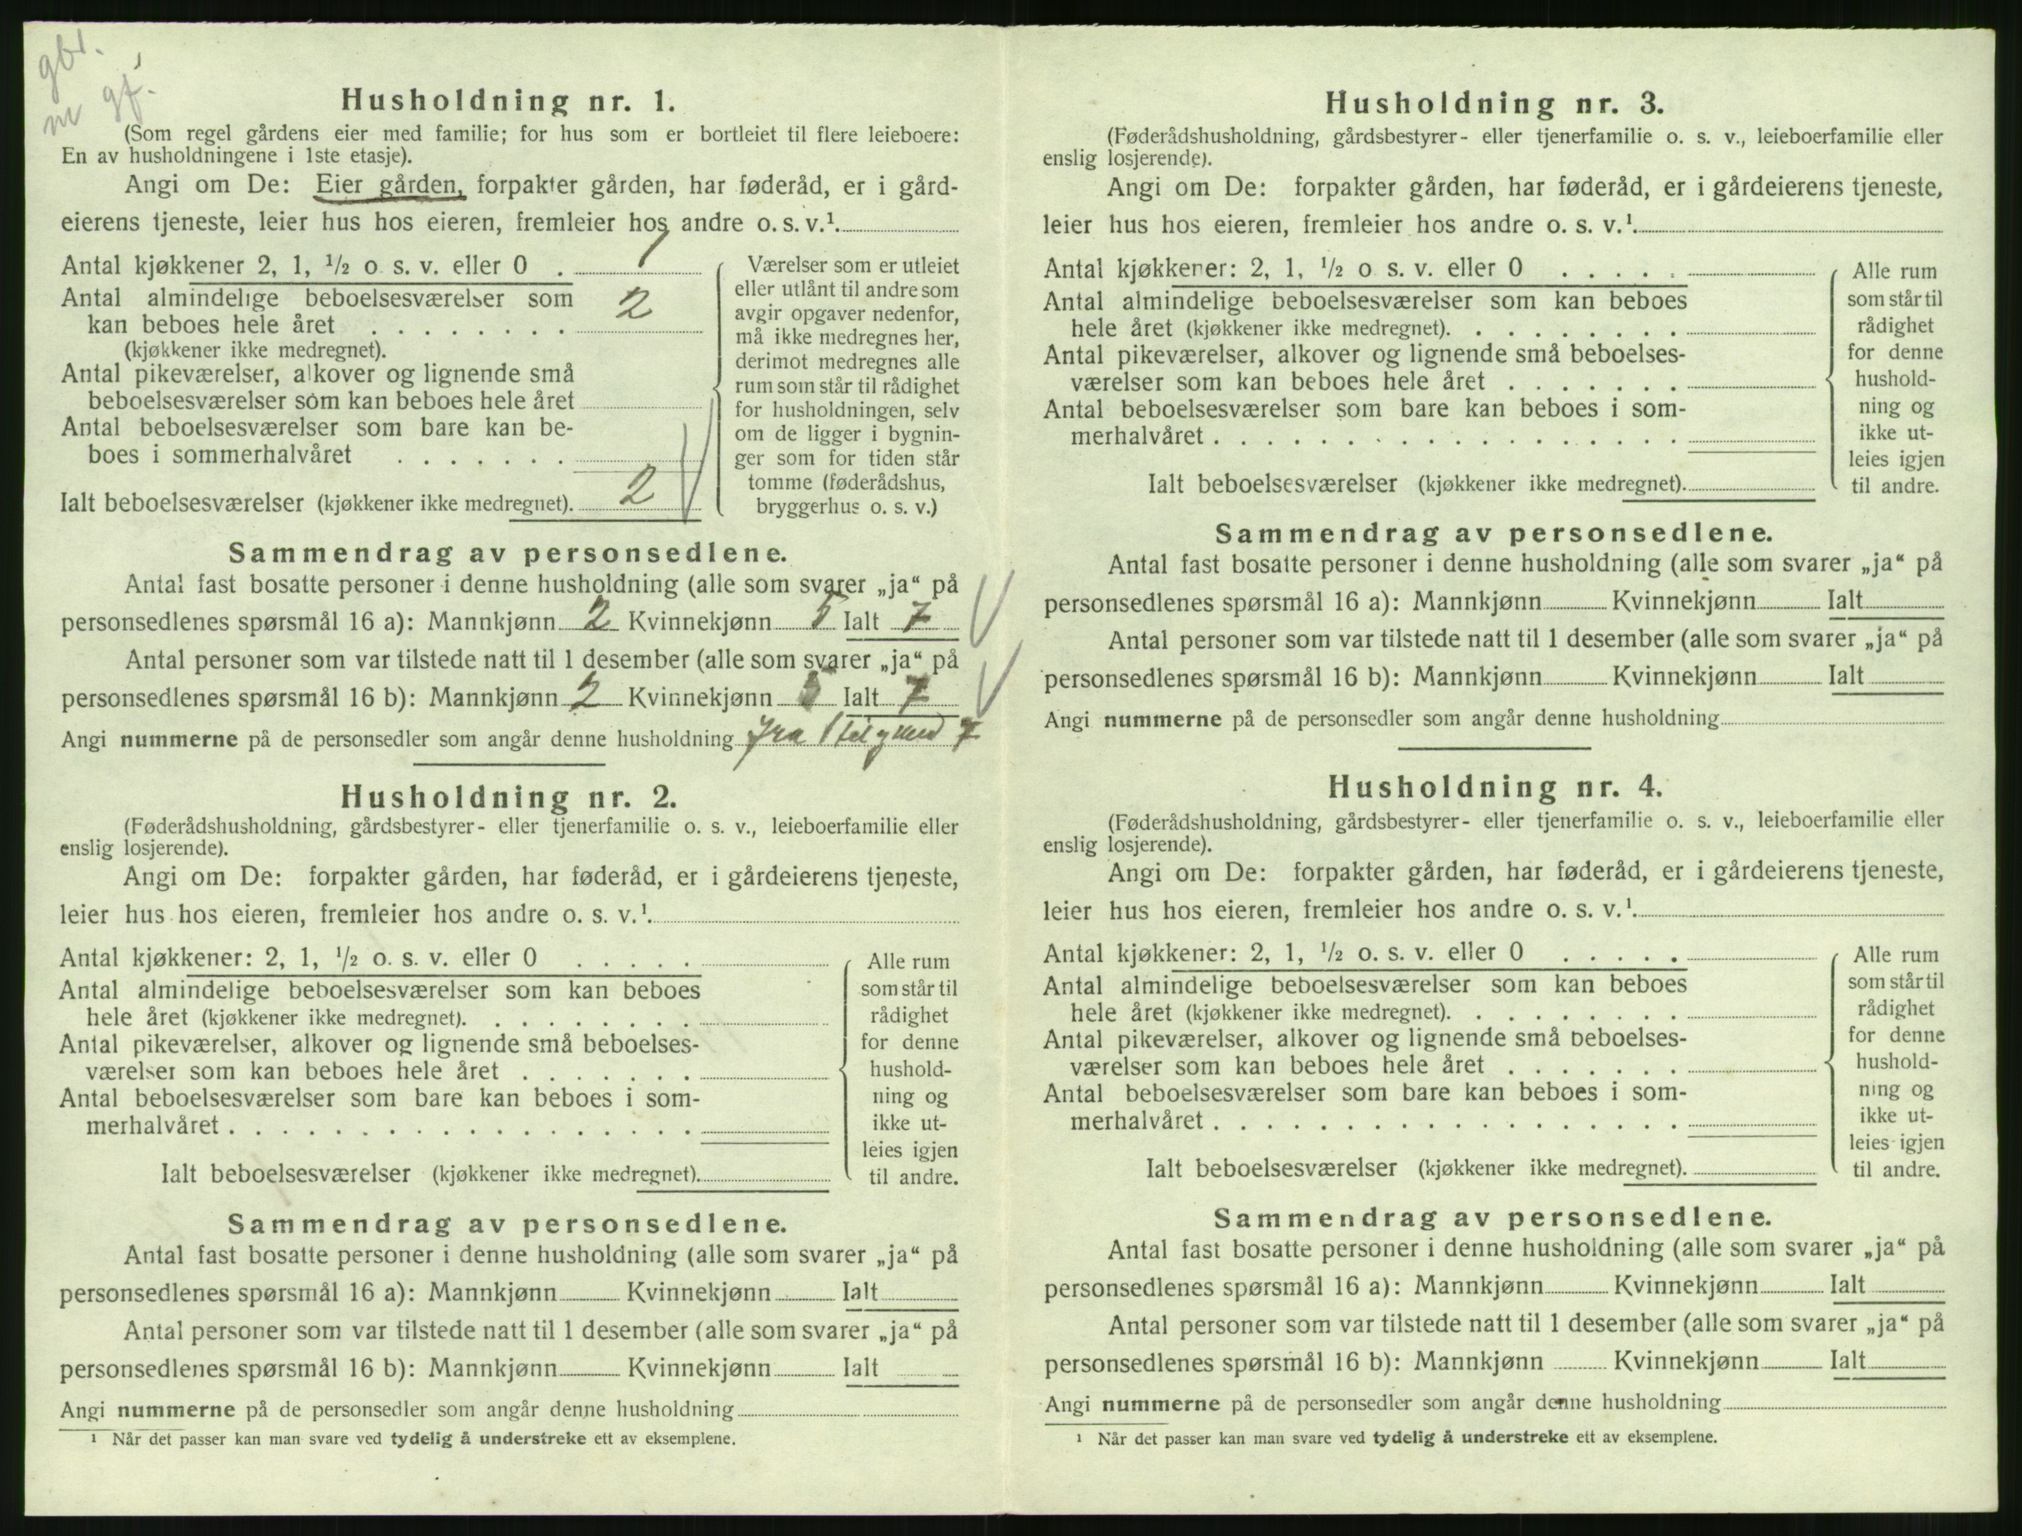 gbr.
m gf.
Husholdning nr. 1.
(Som regel gårdens eier med familie; for hus som er bortleiet til flere leieboere:
En av husholdningene i 1ste etasje).
Angi om De: Eier gården, forpakter gården, har føderåd, er i gård-
eierens tjeneste, leier hus hos eieren, fremleier hos andre o. s. v.¹.
Antal kjøkkener 2, 1, ½ o. s. v. eller 0 . 1
Antal almindelige beboelsesværelser som
kan beboes hele året . . . . . . . . 2
(kjøkkener ikke medregnet).
Antal pikeværelser, alkover og lignende små
beboelsesværelser som kan beboes hele året
Antal beboelsesværelser som bare kan be-
boes i sommerhalvåret . . . . . . .
Ialt beboelsesværelser (kjøkkener ikke medregnet). 2
Værelser som er utleiet
eller utlånt til andre som
avgir opgaver nedenfor,
må ikke medregnes her,
derimot medregnes alle
rum som står til rådighet
for husholdningen, selv
om de ligger i bygnin-
ger som for tiden står
tomme (føderådshus,
bryggerhus o. s. v.)
Sammendrag av personsedlene.
Antal fast bosatte personer i denne husholdning (alle som svarer „ja“ på
personsedlenes spørsmål 16 a): Mannkjønn 2 Kvinnekjønn 5 Ialt 7
Antal personer som var tilstede natt til 1 desember (alle som svarer „ja“ på
personsedlenes spørsmål 16 b): Mannkjønn 2 Kvinnekjønn 5 Ialt 7
Angi nummerne på de personsedler som angår denne husholdning fra 1 til og med 7
Husholdning nr. 2.
(Føderådshusholdning, gårdsbestyrer- eller tjenerfamilie o. s. v., leieboerfamilie eller
enslig losjerende).
Angi om De: forpakter gården, har føderåd, er i gårdeierens tjeneste,
leier hus hos eieren, fremleier hos andre o. s. v.¹.
Antal kjøkkener: 2, 1, ½ o. s. v. eller 0 . . . . .
Antal almindelige beboelsesværelser som kan beboes
hele året (kjøkkener ikke medregnet). . . . . . . . .
Antal pikeværelser, alkover og lignende små beboelses-
værelser som kan beboes hele året . . . . . . .
Antal beboelsesværelser som bare kan beboes i som-
merhalvåret . . . . . . . . . . . . . . . . . .
Ialt beboelsesværelser (kjøkkener ikke medregnet).
Alle rum
som står til
rådighet
for denne
hushold-
ning og
ikke ut-
leies igjen
til andre.
Sammendrag av personsedlene.
Antal fast bosatte personer i denne husholdning (alle som svarer „ja“ på
personsedlenes spørsmål 16 a): Mannkjønn Kvinnekjønn Ialt
Antal personer som var tilstede natt til 1 desember (alle som svarer „ja“ på
personsedlenes spørsmål 16 b): Mannkjønn Kvinnekjønn Ialt
Angi nummerne på de personsedler som angår denne husholdning
¹ Når det passer kan man svare ved tydelig å understreke ett av eksemplene.
Husholdning nr. 3.
(Føderådshusholdning, gårdsbestyrer- eller tjenerfamilie o. s. v., leieboerfamilie eller
enslig losjerende).
Angi om De: forpakter gården, har føderåd, er i gårdeierens tjeneste,
leier hus hos eieren, fremleier hos andre o. s. v.¹.
Antal kjøkkener: 2, 1, ½ o. s. v. eller 0 . . . . .
Antal almindelige beboelsesværelser som kan beboes
hele året (kjøkkener ikke medregnet). . . . . . . . .
Antal pikeværelser, alkover og lignende små beboelses-
værelser som kan beboes hele året . . . . . . .
Antal beboelsesværelser som bare kan beboes i som-
merhalvåret . . . . . . . . . . . . . . . . . .
Ialt beboelsesværelser (kjøkkener ikke medregnet).
Alle rum
som står til
rådighet
for denne
hushold-
ning og
ikke ut-
leies igjen
til andre.
Sammendrag av personsedlene.
Antal fast bosatte personer i denne husholdning (alle som svarer „ja“ på
personsedlenes spørsmål 16 a): Mannkjønn Kvinnekjønn Ialt
Antal personer som var tilstede natt til 1 desember (alle som svarer „ja“ på
personsedlenes spørsmål 16 b): Mannkjønn Kvinnekjønn Ialt
Angi nummerne på de personsedler som angår denne husholdning
Husholdning nr. 4.
(Føderådshusholdning, gårdsbestyrer- eller tjenerfamilie o. s. v., leieboerfamilie eller
enslig losjerende).
Angi om De: forpakter gården, har føderåd, er i gårdeierens tjeneste,
leier hus hos eieren, fremleier hos andre o. s. v.¹.
Antal kjøkkener: 2, 1, ½ o. s. v. eller 0 . . . . .
Antal almindelige beboelsesværelser som kan beboes
hele året (kjøkkener ikke medregnet). . . . . . . . .
Antal pikeværelser, alkover og lignende små beboelses-
værelser som kan beboes hele året . . . . . . .
Antal beboelsesværelser som bare kan beboes i som-
merhalvåret . . . . . . . . . . . . . . . . . .
Ialt beboelsesværelser (kjøkkener ikke medregnet).
Alle rum
som står til
rådighet
for denne
hushold-
ning og
ikke ut-
leies igjen
til andre.
Sammendrag av personsedlene.
Antal fast bosatte personer i denne husholdning (alle som svarer „ja“ på
personsedlenes spørsmål 16 a): Mannkjønn Kvinnekjønn Ialt
Antal personer som var tilstede natt til 1 desember (alle som svarer „ja“ på
personsedlenes spørsmål 16 b): Mannkjønn Kvinnekjønn Ialt
Angi nummerne på de personsedler som angår denne husholdning
¹ Når det passer kan man svare ved tydelig å understreke ett av eksemplene.